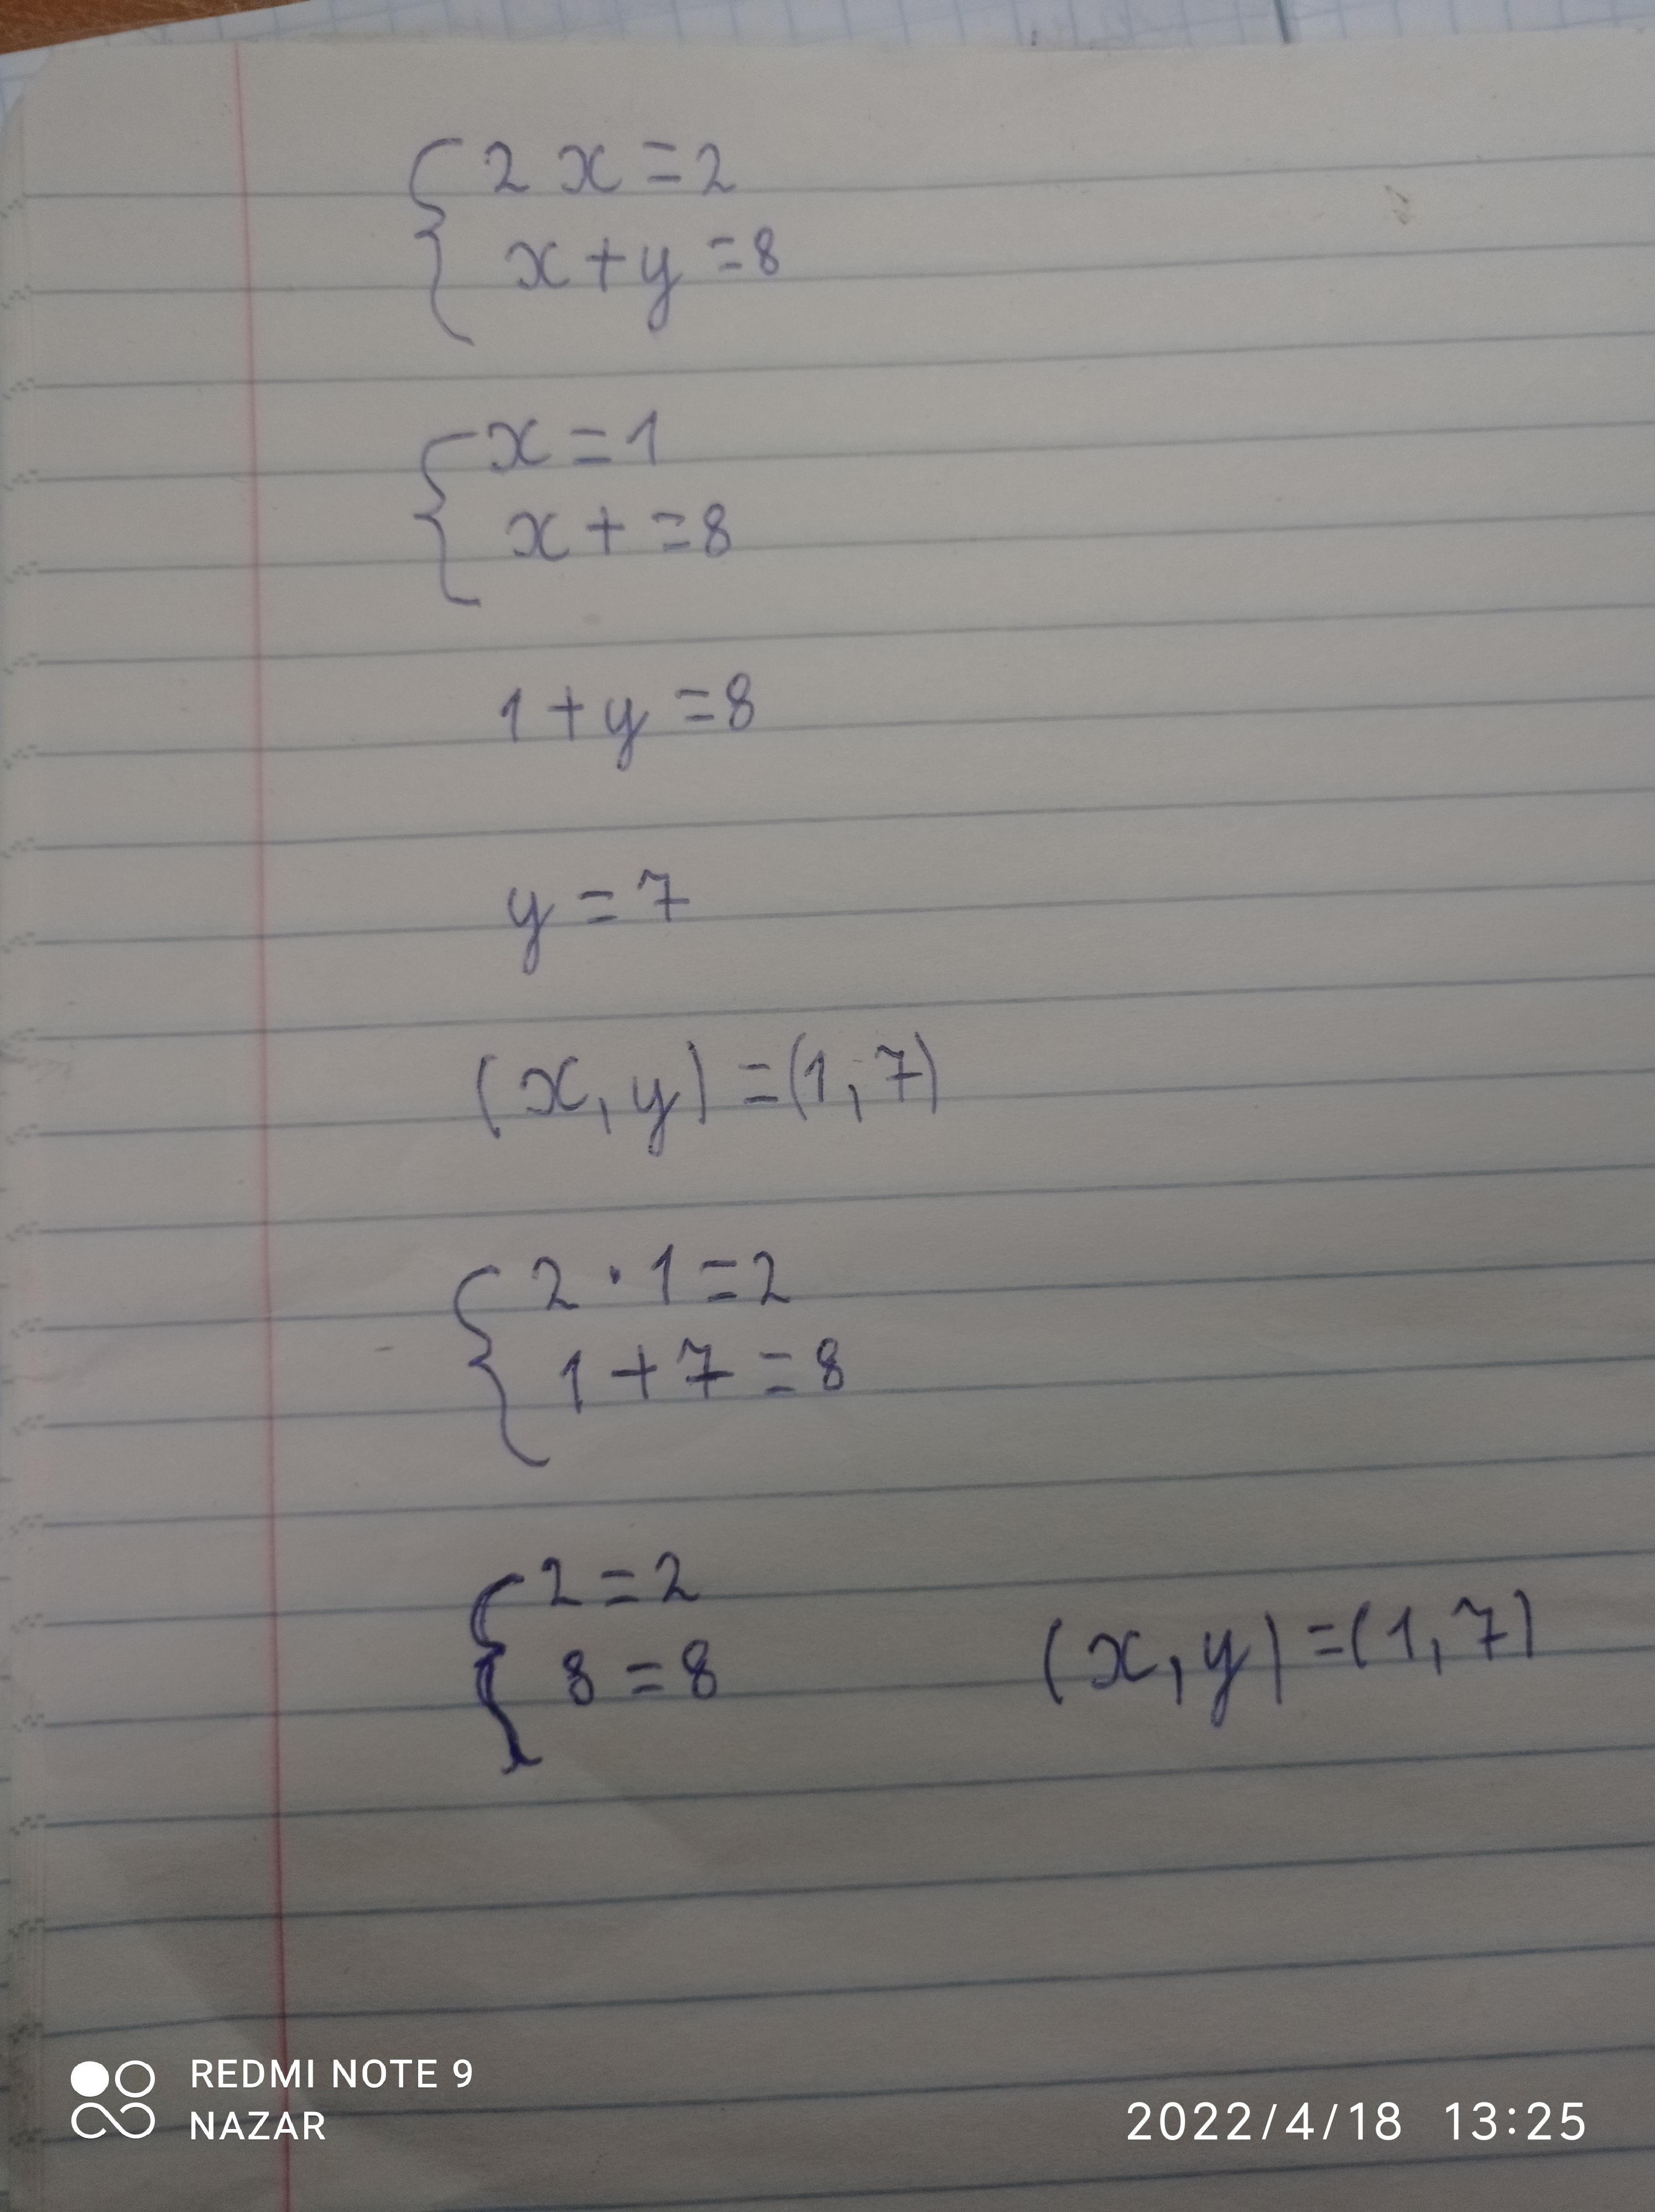 2x=2
x+y=8
x=1
x+=8
1+y=8
y=7
(x,y)=(1,7)
2·1=2
1+7=8
2=2
8=8 (x,y)=(1,7)
REDMI NOTE 9
NAZAR
2022/4/18 13:25